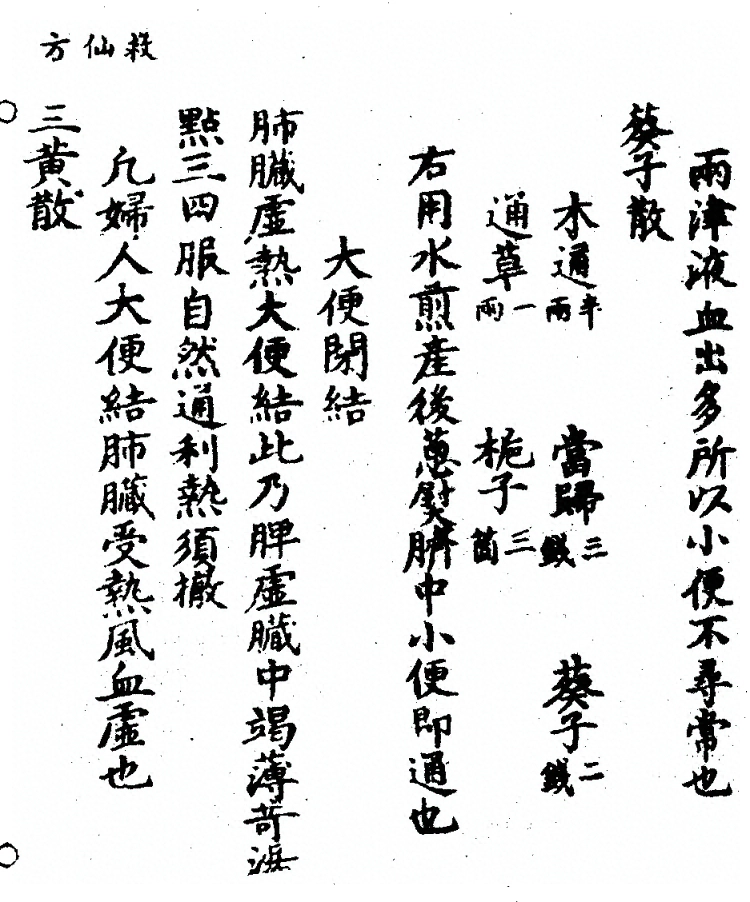 仙方
兩津液血出多所以小便不尋常也
葵子散
木通半兩 當歸三錢 葵子二錢
通草一兩 梔子三箇
右用水煎產後蔥熨臍中小便即通也
大便閉結
肺臟虛熱大便結此乃脾虛臟中竭薄荷
點三四服自然通利熱須撤
凡婦人大便結肺臟受熱風血虛也
三黃散